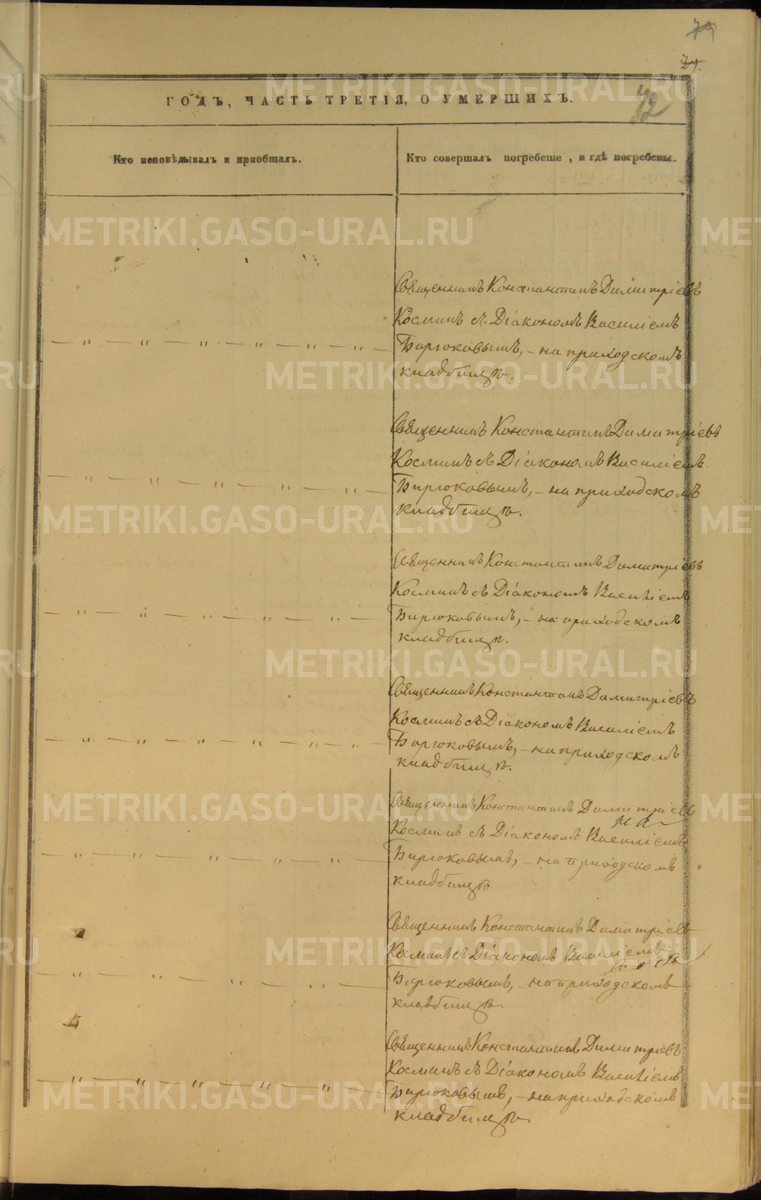 79
74.
72
ГОДЪ, ЧАСТЬ ТРЕТІЯ, О УМЕРШИХЪ.
Кто исповѣдывалъ и пріобщалъ.
Кто совершалъ погребеніе, и гдѣ погребены.
Священникъ Константинъ Димитріевъ
Косминъ съ Діакономъ Василіемъ
— " — " — " — " — " — " —
Бирюковымъ, – на приходскомъ
кладбищѣ.
Священникъ Константинъ Димитріевъ
Косминъ съ Діакономъ Василіемъ
— " — " — " — " — " — " —
Бирюковымъ, – на приходскомъ
кладбищѣ.
Священникъ Константинъ Димитріевъ
Косминъ съ Діакономъ Василіемъ
— " — " — " — " — " — " —
Бирюковымъ, – на приходскомъ
кладбищѣ.
Священникъ Константинъ Димитріевъ
Косминъ съ Діакономъ Василіемъ
— " — " — " — " — " — " —
Бирюковымъ, – на приходскомъ
кладбищѣ.
Священникъ Константинъ Димитріевъ
Косминъ съ Діакономъ Василіемъ
— " — " — " — " — " — " —
Бирюковымъ, – на приходскомъ
кладбищѣ
Священникъ Константинъ Димитріевъ
Косминъ съ Діакономъ Василіемъ
— " — " — " — " — " — " —
Бирюковымъ, – на приходскомъ
кладбищѣ.
Священникъ Константинъ Димитріевъ
Косминъ съ Діакономъ Василіемъ
— " — " — " — " — " — " —
Бирюковымъ, – на приходскомъ
кладбищѣ.
METRIKI.GASO-URAL.RU